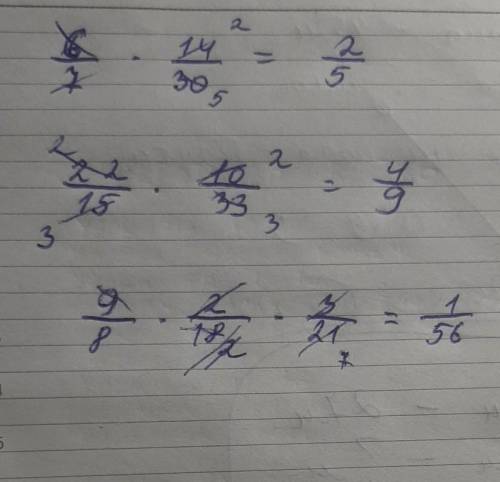 6/7 · 14/30 2 5 = 2/5
2 3 22/15 · 10/33 2 3 = 4/9
9/8 · 2/18 2 · 3/21 7 = 1/56